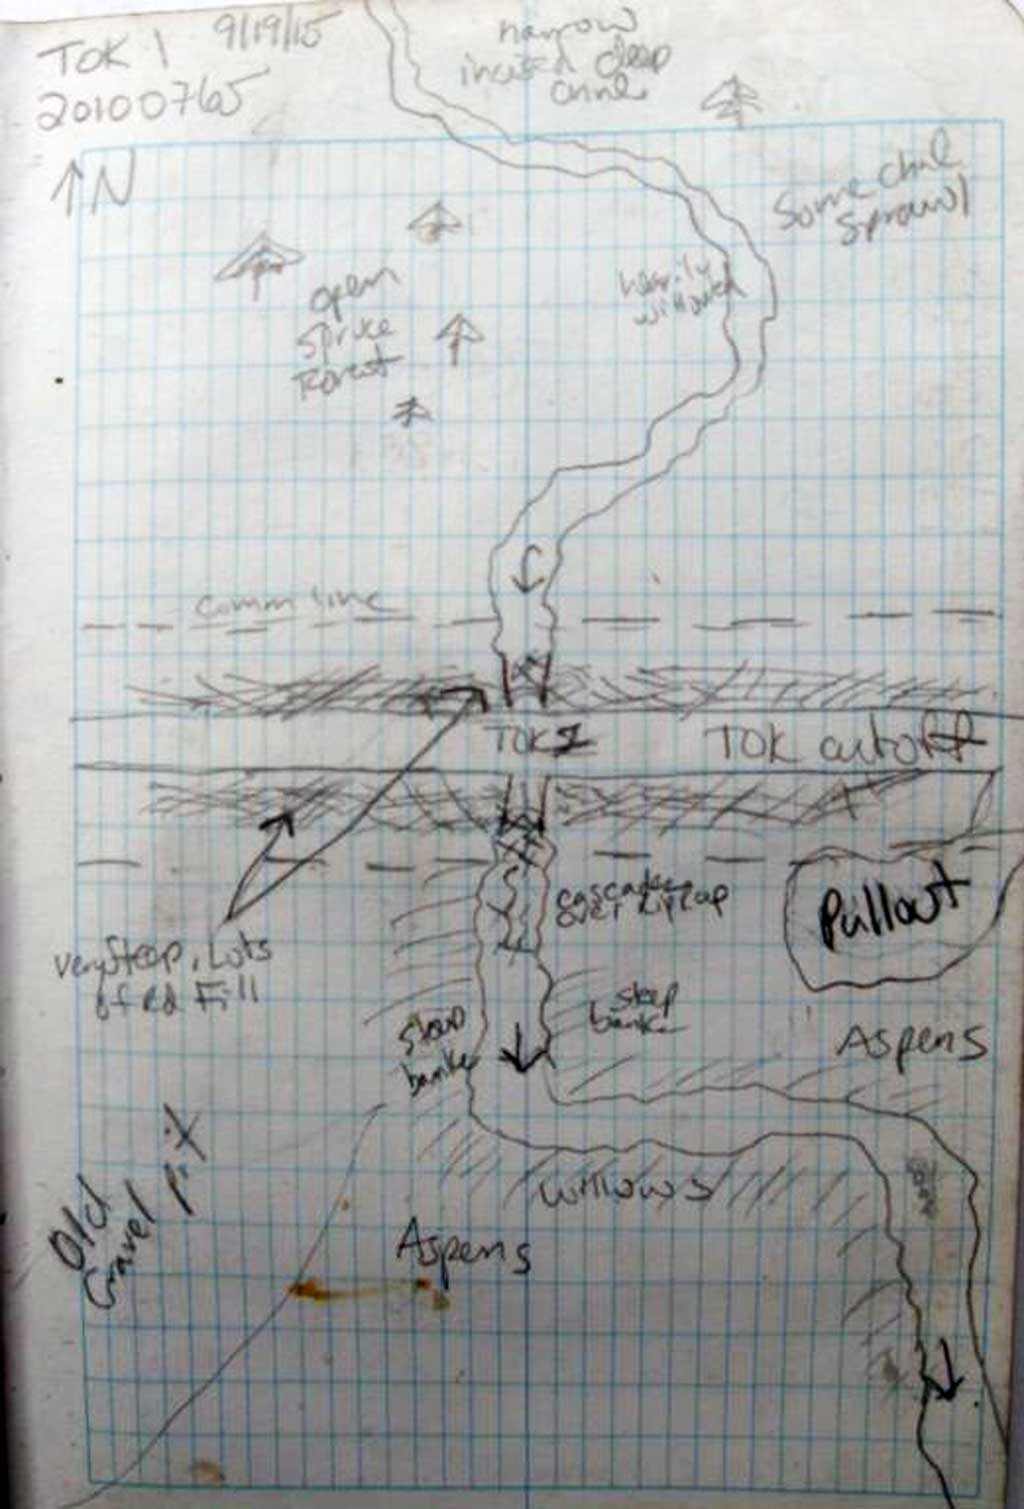 TOK 1 9/19/15
20100765
↑N
narrow
incised deep
chnl
Some chnl
sprawl
heavily
willowed
open
spruce
Forest
comm line
TOK 1
TOK cutoff
cascades
over riprap
Pullout
very steep, Lots
of rd Fill
steep
banks
steep
bank
Aspens
Old
Gravel
pit
willows
Aspens